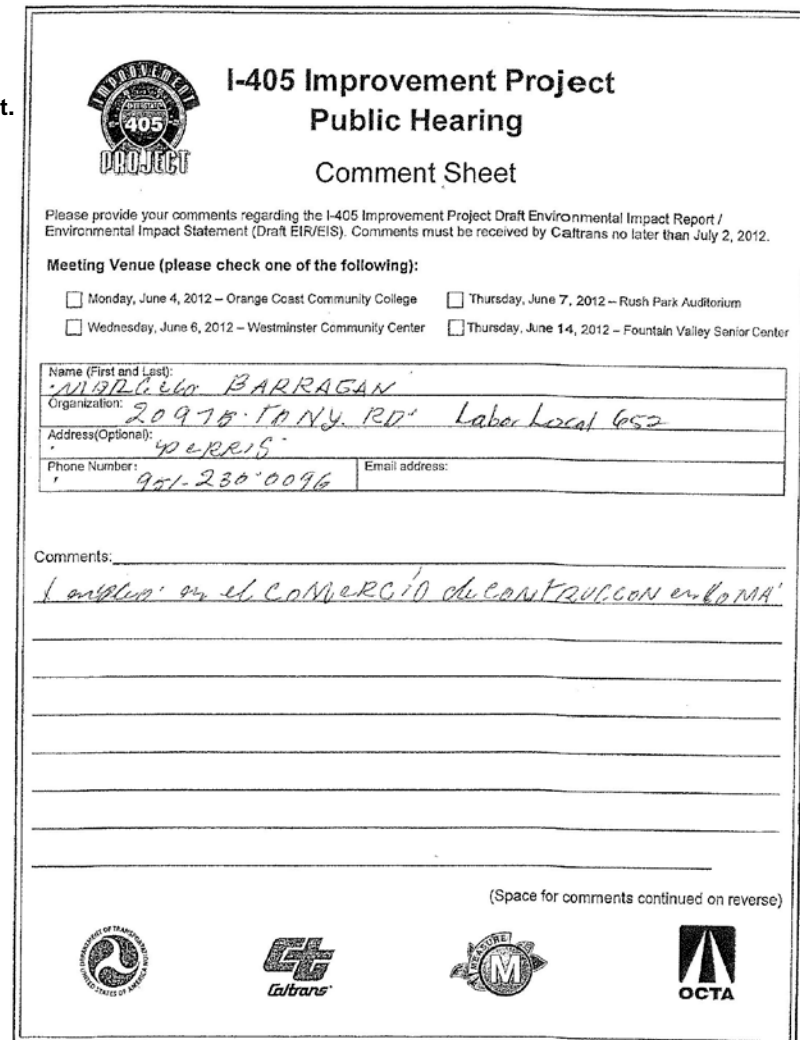 t.
IMPROVEMENT
INTERSTATE
405
PROJECT
I-405 Improvement Project
Public Hearing
Comment Sheet
Please provide your comments regarding the I-405 Improvement Project Draft Environmental Impact Report /
Environmental Impact Statement (Draft EIR/EIS). Comments must be received by Caltrans no later than July 2, 2012.
Meeting Venue (please check one of the following):
Monday, June 4, 2012 – Orange Coast Community College
Thursday, June 7, 2012 – Rush Park Auditorium
Wednesday, June 6, 2012 – Westminster Community Center
Thursday, June 14, 2012 – Fountain Valley Senior Center
Name (First and Last):
BARRAGAN
Organization: 20975 TONY. RD' Labor Local 652
Address(Optional): PERRIS
Phone Number: 951-230-0096 Email address:
Comments:
en el COMERCIO de CONTRUCCON en
(Space for comments continued on reverse)
DEPARTMENT OF TRANSPORTATION
UNITED STATES OF AMERICA
Caltrans
MEASURE
M
OCTA